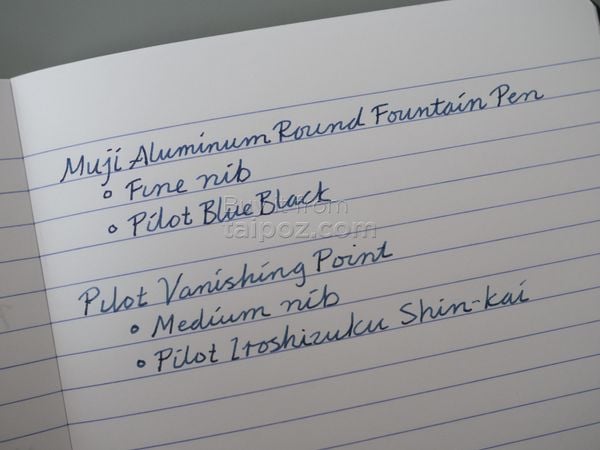 Muji Aluminum Round Fountain Pen
• Fine nib
• Pilot Blue Black
from
taipoz.com
Pilot Vanishing Point
• Medium nib
• Pilot Iroshizuku Shin-kai